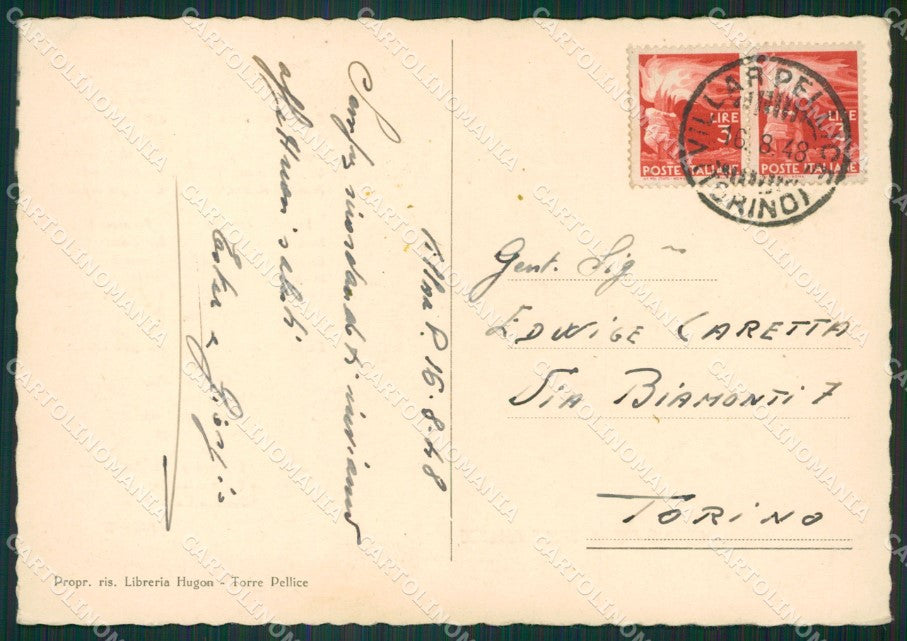 Villar P. 16.8.48
Sempre ricordandoti inviamo
affettuosi saluti
Ester e Giorgio
Propr. ris. Libreria Hugon - Torre Pellice
LIRE
3
POSTE ITALIANE
LIRE
POSTE ITALIANE
VILLAR PELLICE
16.8.48
(TORINO)
Gent. Sig.
EDWIGE CARETTA
VIA BIAMONTI 7
TORINO
CARTOLINOMANIA